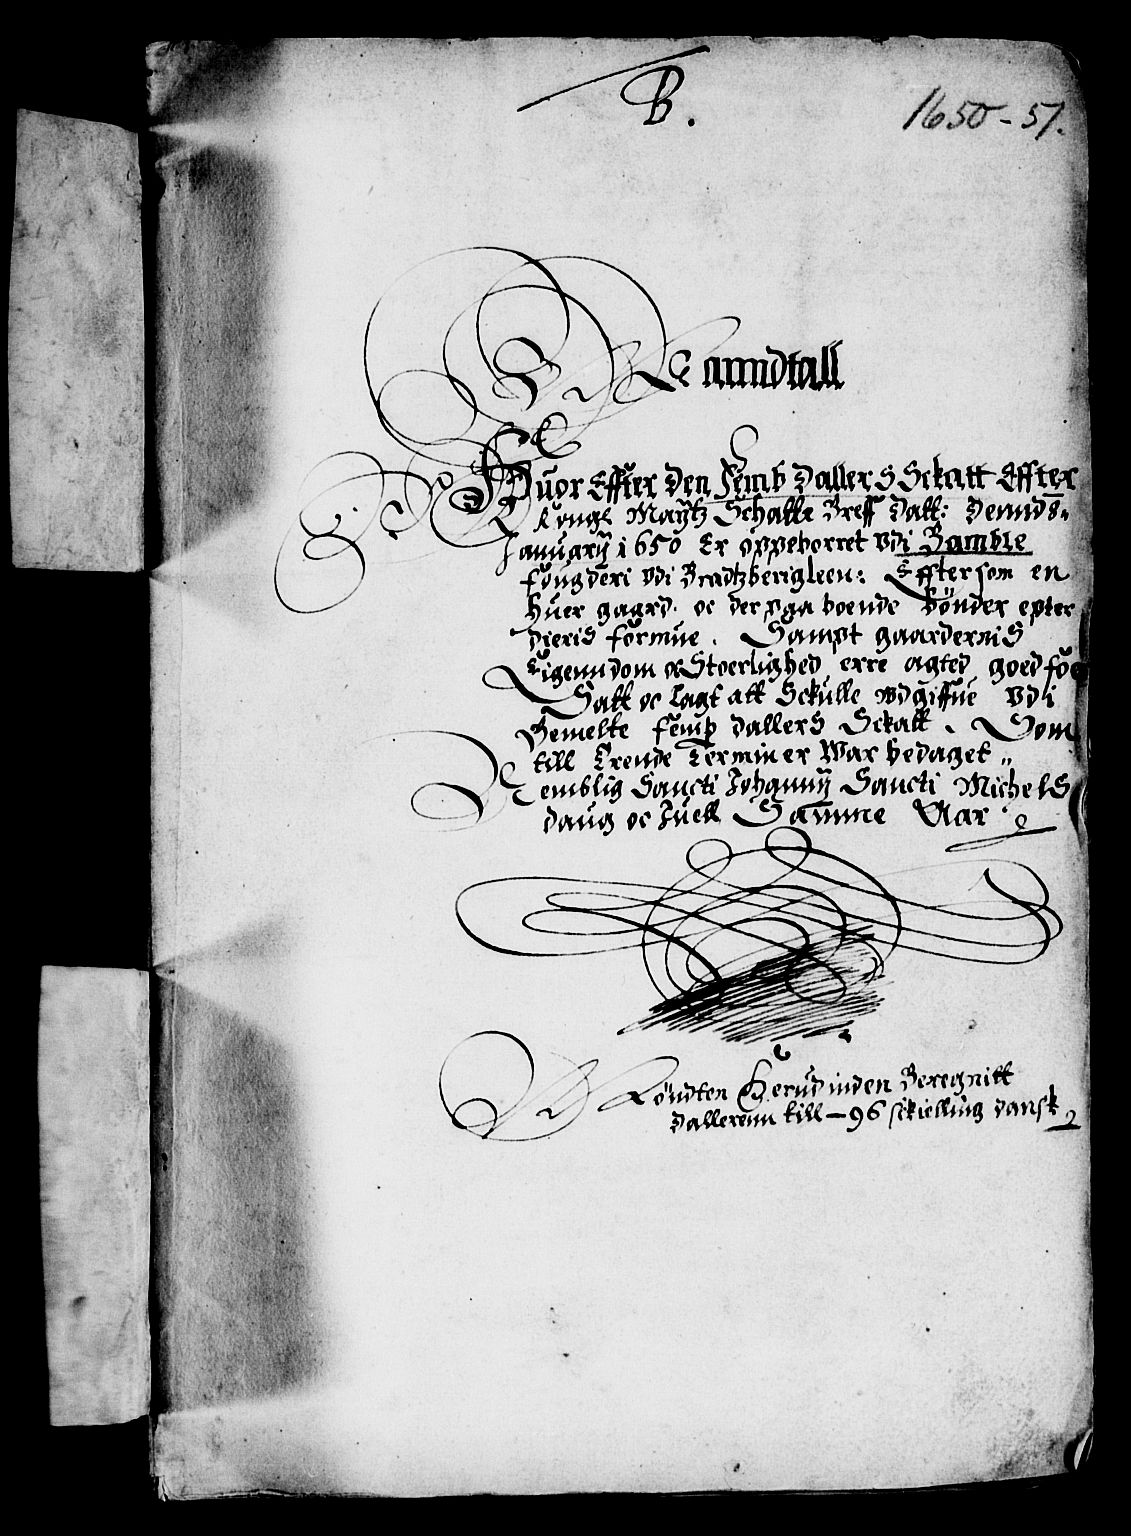 B.
1650-51.
Manndtall
Huor Effter den Femb dallers Sckatt Effter
Kongl Maÿtz Schatte Breff Datt: Dennd 8.
Januarÿ 1650 Er oppeborret vdi Bamble
fougderi vdi Bradtzberigleen: Efftersom en
huer gaard. oc der paa boende bönder epter
dieris formue. Sampt gaardernis
Eigenndom oc Stoerlighed erre agted goed för
Satt oc lagt att Sckulle vdgiffue vdi
Bemelte femp dallers Sckatt. Som
till Trende Terminer War bedaget
Nemblig Sancti Johannÿ Sancti Michels
daug oc Juell Samme Aar
Mönndten Herudinden Beregnitt
dallerenn till - 96 sckielling dansk